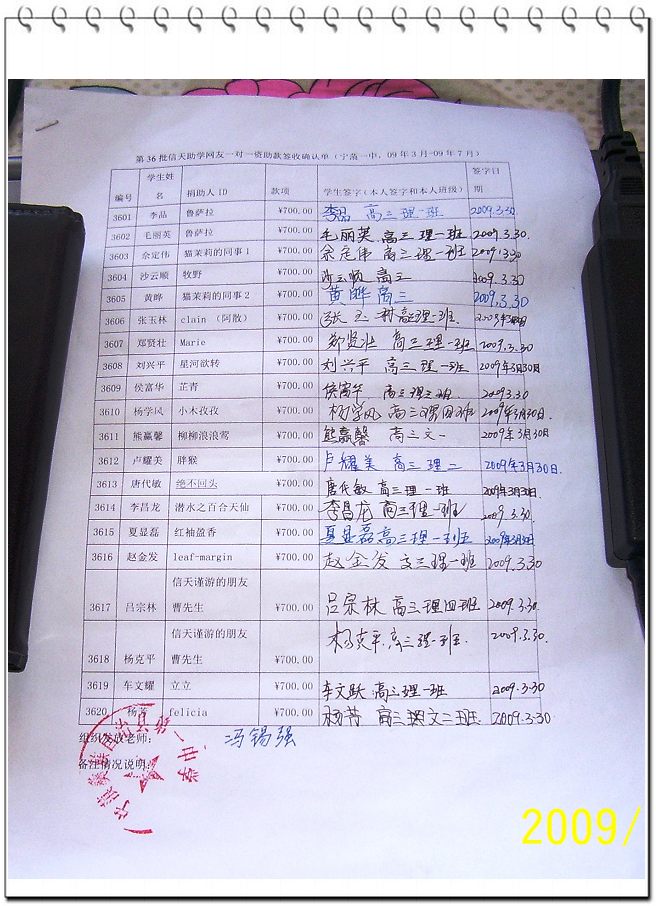 第36批信天助学网友一对一资助款签收确认单（宁蒗一中，09年3月-09年7月）
编号 学生姓名 捐助人ID 款项 学生签字（本人签字和本人班级） 签字日期
3601 李品 鲁萨拉 ¥700.00 李品 高三理一班 2009.3.30
3602 毛丽英 鲁萨拉 ¥700.00 毛丽英 高三理一班 2009.3.30.
3603 余定伟 猫茉莉的同事1 ¥700.00 余定伟 高三理一班 2009.3.30
3604 沙云顺 牧野 ¥700.00 沙云顺 高三 2009.3.30
3605 黄晔 猫茉莉的同事2 ¥700.00 黄晔 高三 2009.3.30
3606 张玉林 clain（阿散） ¥700.00 张玉林 高三理一班.
3607 郑贤壮 Marie ¥700.00 郑贤壮 高三理一班 2009.3.30
3608 刘兴平 星河欲转 ¥700.00 刘兴平 高三理一班 2009年3月30日
3609 侯富华 芷青 ¥700.00 侯富华 高三理三班. 2009.3.30
3610 杨学风 小木孜孜 ¥700.00 杨学风 高三理四班 2009年3月30日.
3611 熊赢馨 柳柳浪浪莺 ¥700.00 熊赢馨 高三文一 2009年3月30日
3612 卢耀美 胖猴 ¥700.00 卢耀美 高三理二 2009年3月30日.
3613 唐代敏 绝不回头 ¥700.00 唐代敏 高三理一班 2009年3月30日
3614 李昌龙 潜水之百合天仙 ¥700.00 李昌龙 高三理一班 2009.3.30.
3615 夏显磊 红袖盈香 ¥700.00 夏显磊 高三理一班 2009年3月30日
3616 赵金发 leaf-margin ¥700.00 赵金发 高三理一班 2009.3.30
3617 吕宗林 信天谨游的朋友
曹先生 ¥700.00 吕宗林 高三理四班 2009.3.30.
3618 杨克平 信天谨游的朋友
曹先生 ¥700.00 杨克平 高三理一班. 2009.3.30.
3619 车文耀 立立 ¥700.00 车文跃 高三理一班 2009.3.30
3620 杨芳 felicia ¥700.00 杨芳 高三文二班. 2009.3.30
组织发放老师： 冯锡强
备注情况说明：
2009/